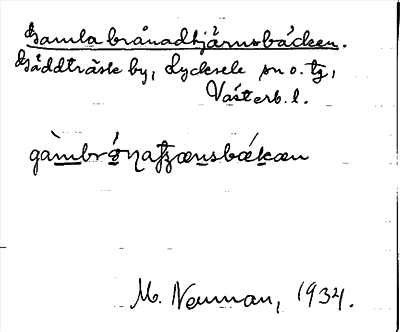 Gamla brånadtjärnsbäcken.
Gäddträsk by, Lycksele sn o. tg,
Västerb. l.
gàmbrǿnatʒænsbækæn
M. Neuman, 1934.